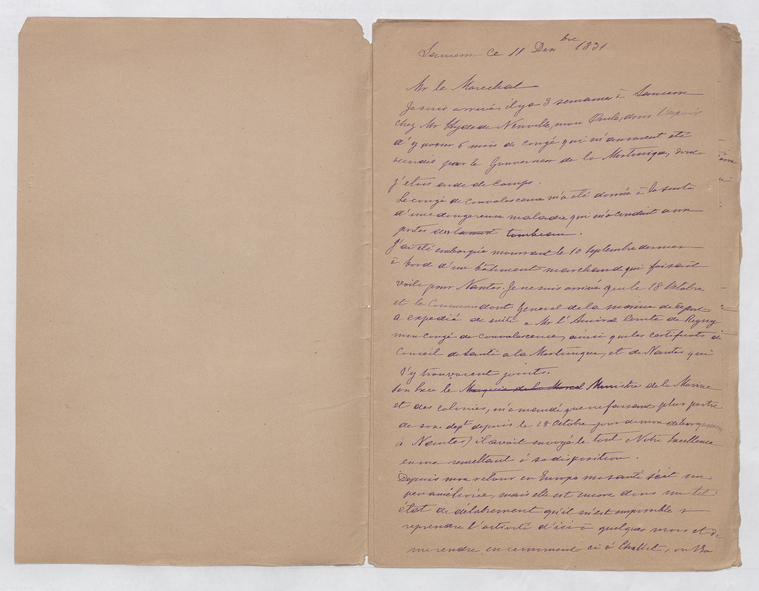 Sancerre ce 11 Décbre 1831
Mr le Maréchal
Je suis arrivé il y a 3 semaines à Sancerre
chez Mr Hyde de Neuville, mon Oncle, dans l'espoir
d'y passer 6 mois de congé qui m'avaient été
accordés par le Gouverneur de la Martinique, dont
j'étais aide de camp.
Le congé de convalescence m'a été donné à la suite
d'une dangereuse maladie qui m'a conduit aux
portes du tombeau.
J'ai été embarqué mourant le 10 Septembre dernier
à bord d'un bâtiment marchand qui faisait
voile pour Nantes. Je ne suis arrivé que le 18 Octobre
et le Commandant Général de la marine de ce port
a expédié de suite à Mr l'Amiral Comte de Rigny
mon congé de convalescence, ainsi que les certificats du
Conseil de Santé à la Martinique, et de Nantes qui
s'y trouvaient joints.
Son Exce le Ministre de la Marine
et des colonies, m'a mandé que ne faisant plus partie
de son dept depuis le 18 Octobre jour de mon débarquement
à Nantes) il avait envoyé le tout à Votre Excellence
en me remettant à sa disposition.
Depuis mon retour en Europe ma santé s'est un
peu améliorée, mais elle est encore dans un tel
état de délabrement qu'il m'est impossible de
reprendre l'activité d'ici à quelques mois et de
me rendre en ce moment ci à